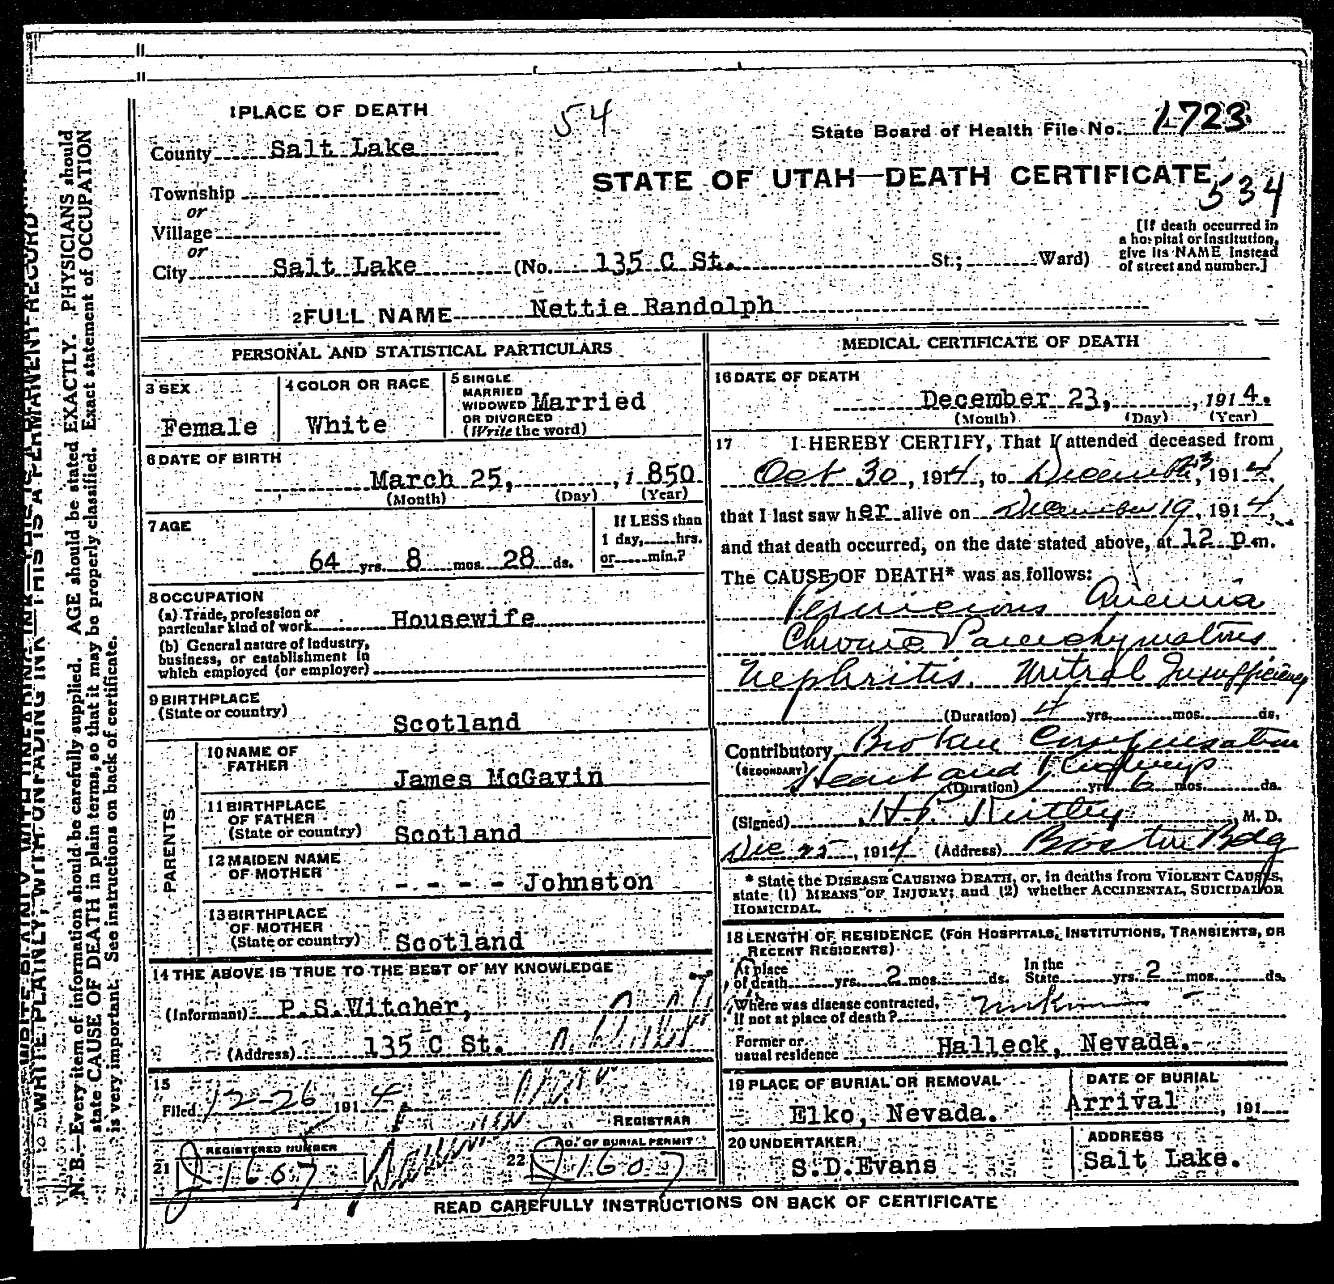 1 PLACE OF DEATH
54
State Board of Health File No. 1723
County Salt Lake
STATE OF UTAH—DEATH CERTIFICATE
534
Township
or
Village
or
City Salt Lake (No. 135 C St. St.; Ward)
[If death occurred in
a hospital or institution,
give its NAME instead
of street and number.]
2 FULL NAME Nettie Randolph
PERSONAL AND STATISTICAL PARTICULARS
3 SEX
Female
4 COLOR OR RACE
White
5 SINGLE
MARRIED
WIDOWED
OR DIVORCED
(Write the word)
Married
6 DATE OF BIRTH
March 25, , 1850
(Month) (Day) (Year)
7 AGE
64 yrs. 8 mos. 28 ds.
If LESS than
1 day, hrs.
or min.?
8 OCCUPATION
(a) Trade, profession or
particular kind of work Housewife
(b) General nature of industry,
business, or establishment in
which employed (or employer)
9 BIRTHPLACE
(State or country)
Scotland
PARENTS
10 NAME OF
FATHER
James McGavin
11 BIRTHPLACE
OF FATHER
(State or country) Scotland
12 MAIDEN NAME
OF MOTHER
- - - - - Johnston
13 BIRTHPLACE
OF MOTHER
(State or country) Scotland
14 THE ABOVE IS TRUE TO THE BEST OF MY KNOWLEDGE
(Informant) P.S.Witcher,
(Address) 135 C St.
15
Filed 12-26 1914
REGISTRAR
21 REGISTERED NUMBER
1607
22 NO. OF BURIAL PERMIT
1607
MEDICAL CERTIFICATE OF DEATH
16 DATE OF DEATH
December 23, , 1914.
(Month) (Day) (Year)
17 I HEREBY CERTIFY, That I attended deceased from
Oct 30, 1914, to December 23, 1914,
that I last saw her alive on December 19, 1914,
and that death occurred, on the date stated above, at 12 p.m.
The CAUSE OF DEATH* was as follows:
Pernicious Anemia
Chronic Parenchymatous
Nephritis. Mitral Insufficiency
(Duration) 4 yrs. mos. ds.
Contributory Broken Compensation
(SECONDARY) Heart and Kidneys
(Duration) yrs. 6 mos. ds.
(Signed) H.P. M. D.
Dec 25, 1914 (Address) Boston Bdg
* State the DISEASE CAUSING DEATH, or, in deaths from VIOLENT CAUSES,
state (1) MEANS OF INJURY; and (2) whether ACCIDENTAL, SUICIDAL OR
HOMICIDAL.
18 LENGTH OF RESIDENCE (FOR HOSPITALS, INSTITUTIONS, TRANSIENTS, OR
RECENT RESIDENTS)
At place
of death yrs. 2 mos. ds. In the
State yrs. 2 mos. ds.
Where was disease contracted,
If not at place of death?
Former or
usual residence Halleck, Nevada.
19 PLACE OF BURIAL OR REMOVAL
Elko, Nevada.
DATE OF BURIAL
Arrival , 191
20 UNDERTAKER
S.D.Evans
ADDRESS
Salt Lake.
READ CAREFULLY INSTRUCTIONS ON BACK OF CERTIFICATE
WRITE PLAINLY, WITH UNFADING INK—THIS IS A PERMANENT RECORD
N. B.—Every item of information should be carefully supplied. AGE should be stated EXACTLY. PHYSICIANS should
state CAUSE OF DEATH in plain terms, so that it may be properly classified. Exact statement of OCCUPATION
is very important. See instructions on back of certificate.